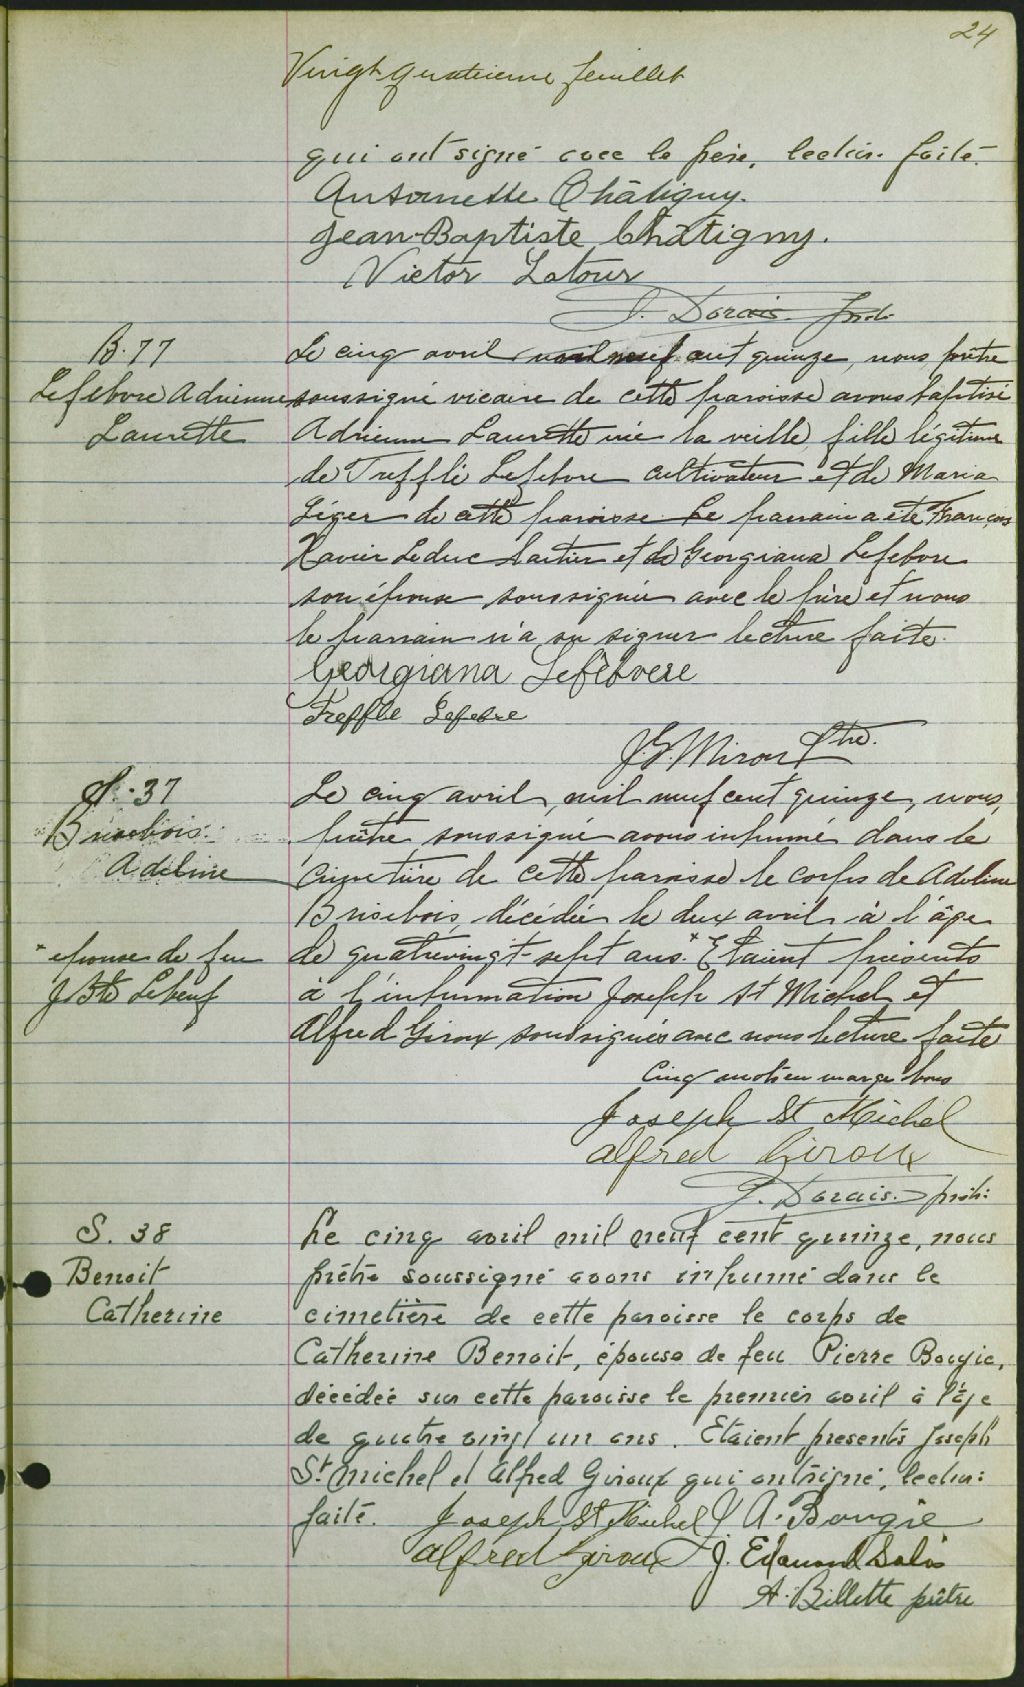 24
Vingt quatrieme feuillet
qui ont signé avec le père, lecture faite.
Antoinette Châtigny.
Jean-Baptiste Châtigny.
Victor Latour
J. Dorais
B. 77
Lefebvre Adrienne
Laurette
Le cinq avril mil neuf cent quinze, nous, prêtre
soussigné vicaire de cette paroisse avons baptisé
Adrienne Laurette née la veille, fille légitime
de Trefflé Lefebvre cultivateur et de Maria
Léger de cette paroisse. Le parrain a été François
Xavier Leduc et Georgiana Lefebvre
son épouse soussignée avec le père et nous
le parrain n'a su signer lecture faite.
Georgiana Lefèbvere
Treffle Lefebre
J. G. Miron Ptre.
S. 37
Brisebois
Adeline
Le cinq avril, mil neuf cent quinze, nous,
prêtre soussigné avons inhumé dans le
cimetière de cette paroisse le corps de Adeline
Brisebois, décédée le deux avril à l'âge
de quatrevingt-sept ans.* Etaient présents
* epouse de feu
J Bte Lebeuf
à l'inhumation Joseph St Michel et
Alfred Giroux soussignés avec nous lecture faite
Cinq mots en marge bons
Joseph St Michel
Alfred Giroux
J. Dorais. ptre:
S. 38
Benoit
Catherine
Le cinq avril mil neuf cent quinze, nous
prêtre soussigné avons inhumé dans le
cimetière de cette paroisse le corps de
Catherine Benoit, épouse de feu Pierre Bougie,
décédée sur cette paroisse le premier avril à l'âge
de quatre vingt un ans. Etaient presents Joseph
St. Michel et Alfred Giroux qui ont signé, lectur:
faite.
Joseph St Michel J A. Bougie
Alfred Giroux J. Edouard
A. Billette prêtre